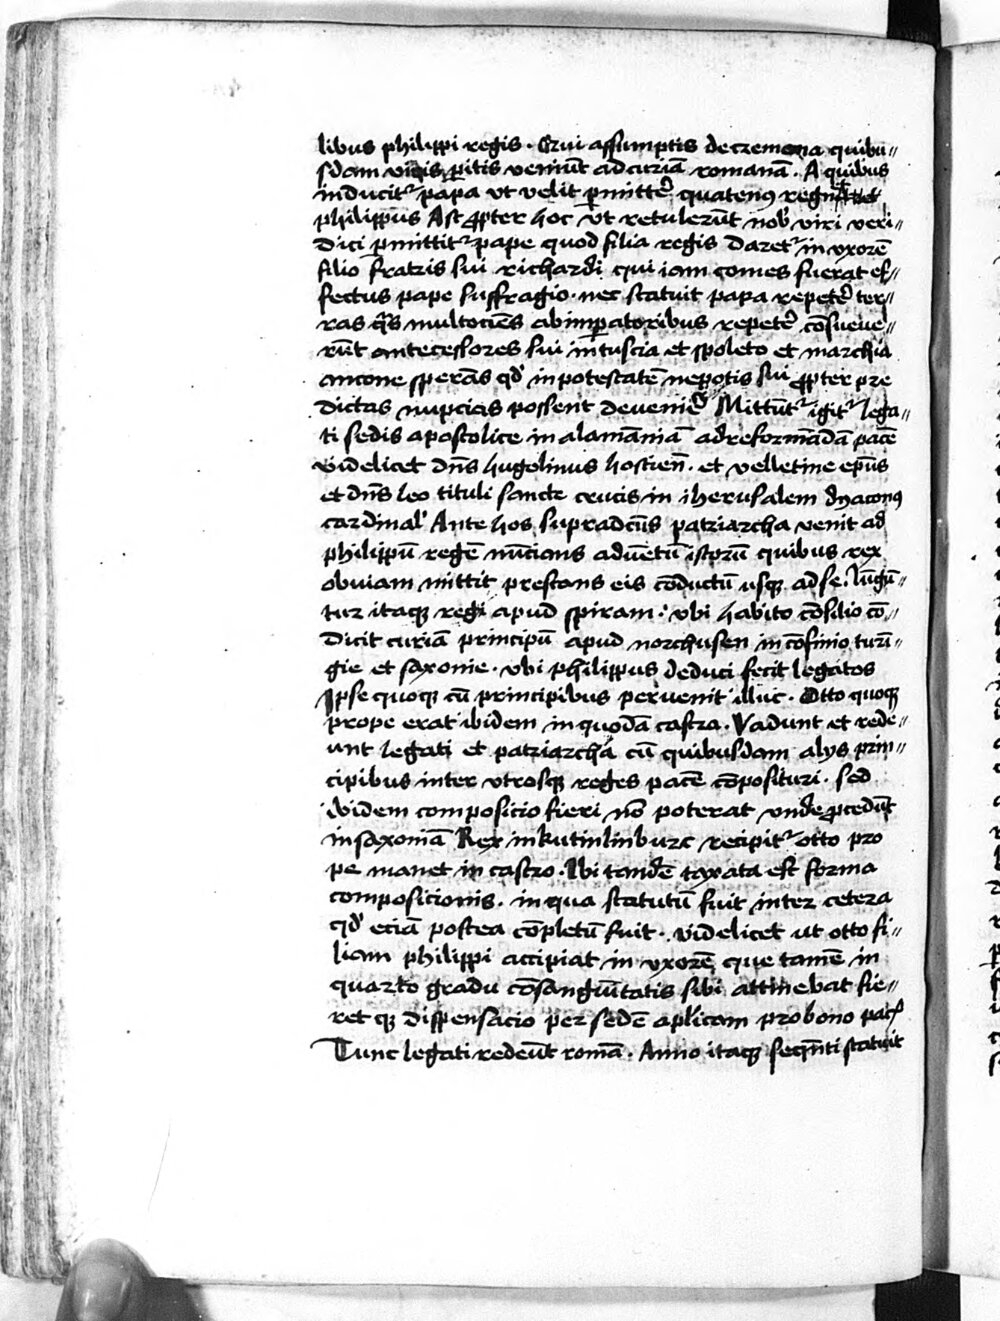 libus philippi regis . Qui assumptis de cremona quibu//
sdam viris pitis veniūt ad curiā romanā . A quibus
inducit̄ papa vt velit pmitter̄ quatenꝰ regnet
philippus Ast ꝓpter hoc vt retulerūt nob̄ viri veri//
dici pmittit̄ pape quod filia regis daret̄ in vxorē
filio fratris sui richardi qui iam comes fuerat ef//
fectus pape suffragio . nec statuit papa repeter̄ ter//
ras q̄s multociēs ab impatoribus repeter̄ cōsueue//
rūt antecessores sui in tuscia et spoleto et marchia
ancone sperās qd̄ in potestatē nepotis sui ꝓpter pre
dictas nupcias possent deuenir̄ Mittūt̄ igit̄ lega//
ti sedis apostolice in alamāniā ad reformādā pacē
videlicet dn̄s hugolinus hostien̄ . et velletine ep̄us
et dn̄s leo tituli sancte crucis in iherusalem dyaconꝰ
cardinal̄ Ante hos supradc̄us patriarcha venit ad
philippū regē nūcians aduētū istorū quibus rex
obuiam mittit prestans eis cōductū usqꝫ ad se . Iūgū//
tur itaqꝫ regi apud spiram : vbi habito cōsilio cō//
dicit curiā principū apud norchusen in cōfinio turī//
gie et saxonie . vbi philippus deduci fecit legatos
Ipse quoqꝫ cū principibus peruenit illuc . Otto quoqꝫ
prope erat ibidem in quodā castra . Vadunt et rede//
unt legati et patriarcha cū quibusdam alys prin//
cipibus inter vtrosqꝫ reges pacē cōposituri . sed
ibidem composicio fieri nō poterat vnde ꝓcedūt
in saxoniā Rex in kutinlinburc recipit̄ otto pro
pe manet in castro . Ibi tandē taxata est forma
composicionis . in qua statutū fuit inter cetera
qd̄ eciā postea cōpletū fuit . videlicet ut otto fi//
liam philippi accipiat in vxorē que tamē in
quarto gradu cōsanguītatis sibi attinebat fie//
retqꝫ dispensacio per sedē aplicam pro bono pacꝭ
Tunc legati redeūt romā . Anno itaqꝫ seqn̄ti statuit